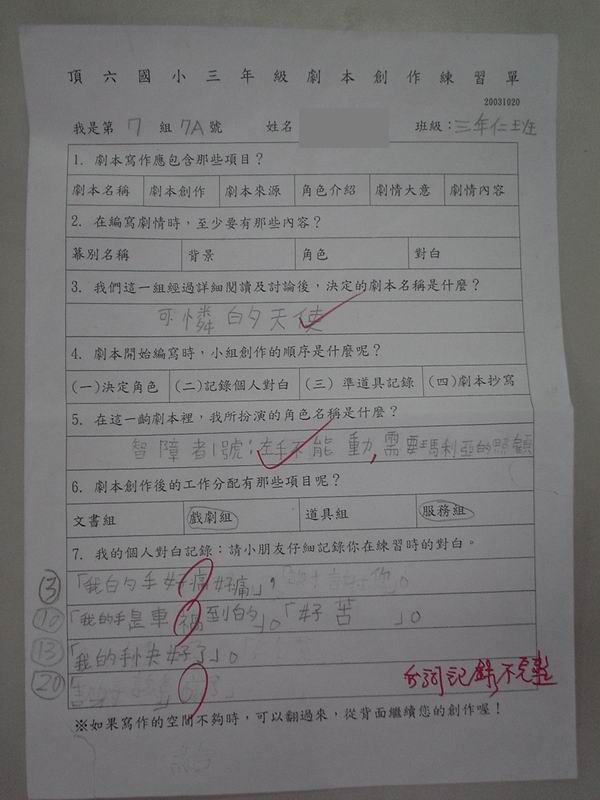 頂六國小三年級劇本創作練習單
20031020
我是第 7 組 7A 號 姓名 班級：三年仁班
1. 劇本寫作應包含那些項目？
劇本名稱 劇本創作 劇本來源 角色介紹 劇情大意 劇情內容
2. 在編寫劇情時，至少要有那些內容？
幕別名稱 背景 角色 對白
3. 我們這一組經過詳細閱讀及討論後，決定的劇本名稱是什麼？
可憐的天使
4. 劇本開始編寫時，小組創作的順序是什麼呢？
(一)決定角色 (二)記錄個人對白 (三) 準道具記錄 (四)劇本抄寫
5. 在這一齣劇本裡，我所扮演的角色名稱是什麼？
智障者1號：左手不能動，需要瑪利亞的照顧
6. 劇本創作後的工作分配有那些項目呢？
文書組 戲劇組 道具組 服務組
7. 我的個人對白記錄：請小朋友仔細記錄你在練習時的對白。
③ 「我的手好痛好痛」，
⑩ 「我的手是車禍到的」。「好苦 」。
⑬ 「我的手快好了」。
⑳
台詞記錄不完整
※如果寫作的空間不夠時，可以翻過來，從背面繼續您的創作喔！